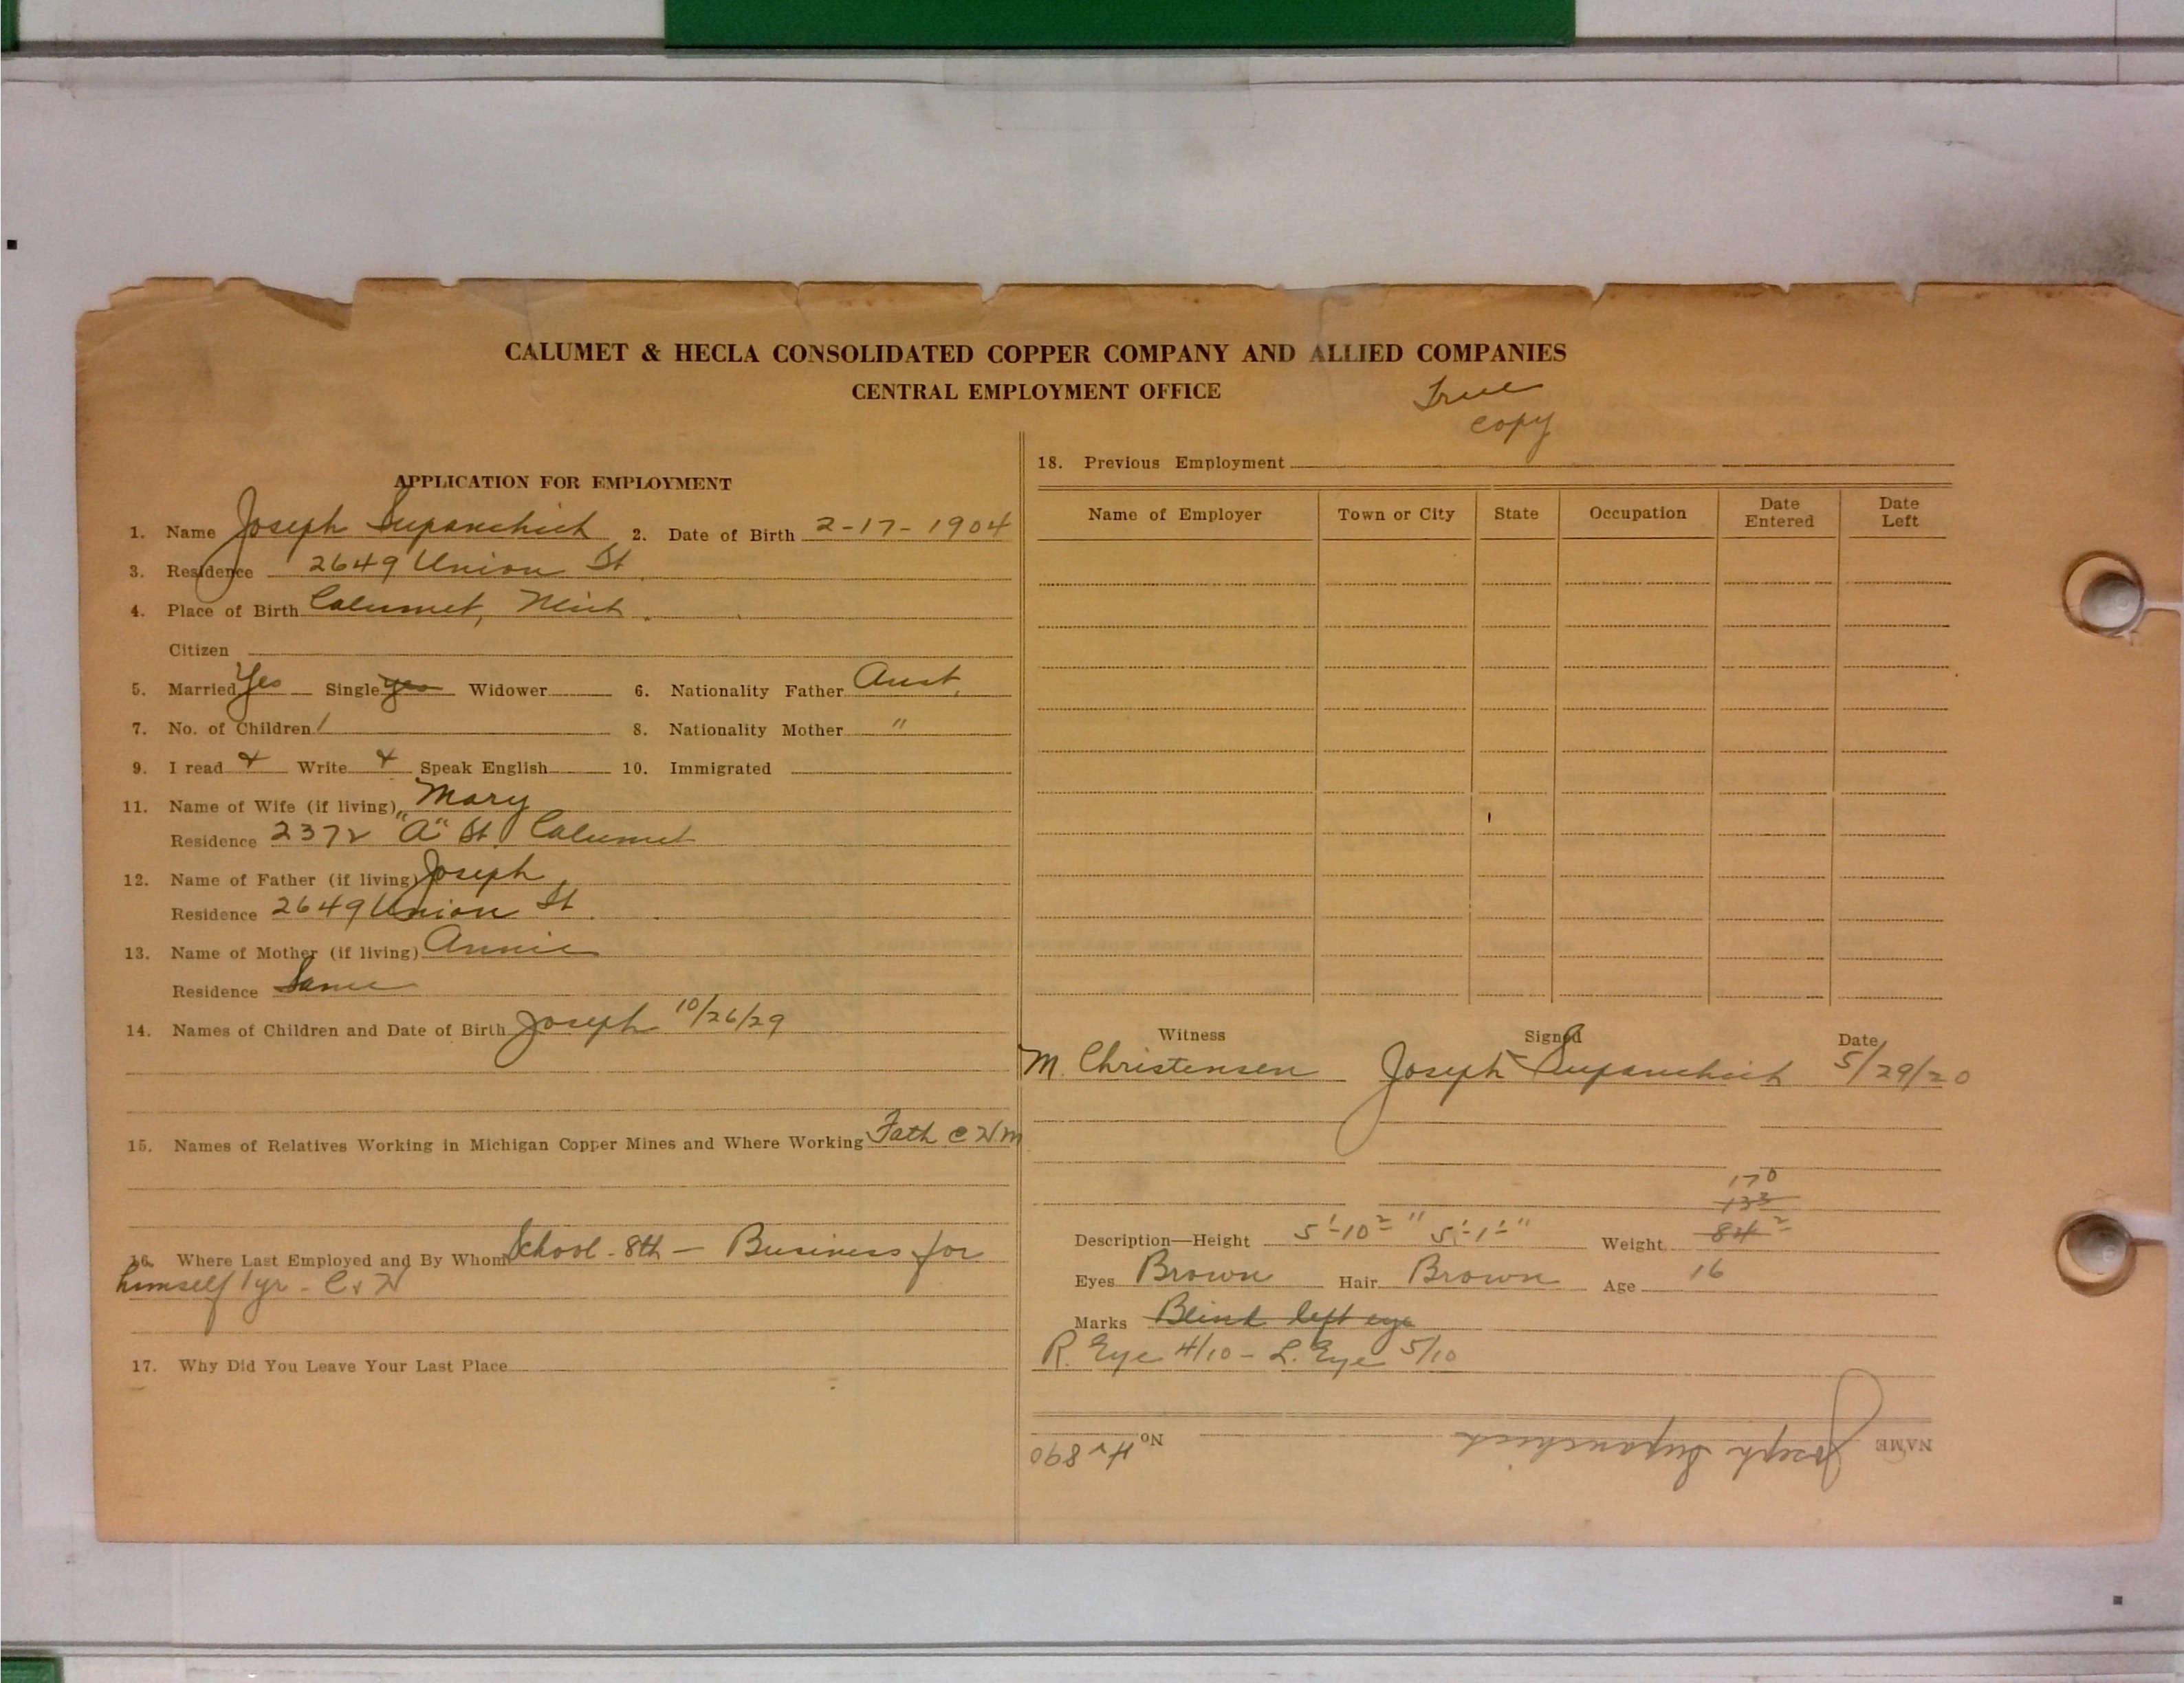 CALUMET & HECLA CONSOLIDATED COPPER COMPANY AND ALLIED COMPANIES
CENTRAL EMPLOYMENT OFFICE
True
copy
APPLICATION FOR EMPLOYMENT
1. Name Joseph Supanchich 2. Date of Birth 2-17-1904
3. Residence 2649 Union St
4. Place of Birth Calumet, Mich.
Citizen
5. Married Yes Single yes Widower 6. Nationality Father Aust.
7. No. of Children 1 8. Nationality Mother "
9. I read Write Speak English 10. Immigrated
11. Name of Wife (if living) Mary
Residence 2372 "A" St. Calumet
12. Name of Father (if living) Joseph
Residence 2649 Union St.
13. Name of Mother (if living) Annie
Residence Same
14. Names of Children and Date of Birth Joseph 10/26/29
15. Names of Relatives Working in Michigan Copper Mines and Where Working Fath C H M
16. Where Last Employed and By Whom School - 8th - Business for
himself 1 yr - C & H
17. Why Did You Leave Your Last Place
18. Previous Employment
Name of Employer Town or City State Occupation Date Entered Date Left
Witness Signed Date
M. Christensen Joseph Supanchich 5/29/20
170
133
Description—Height 5'-10 2" 5'-1 1/2" Weight 84
Eyes Brown Hair Brown Age 16
Marks Blind left eye
R. Eye 4/10 - L. Eye 5/10
NAME Joseph Supanchich No. 890